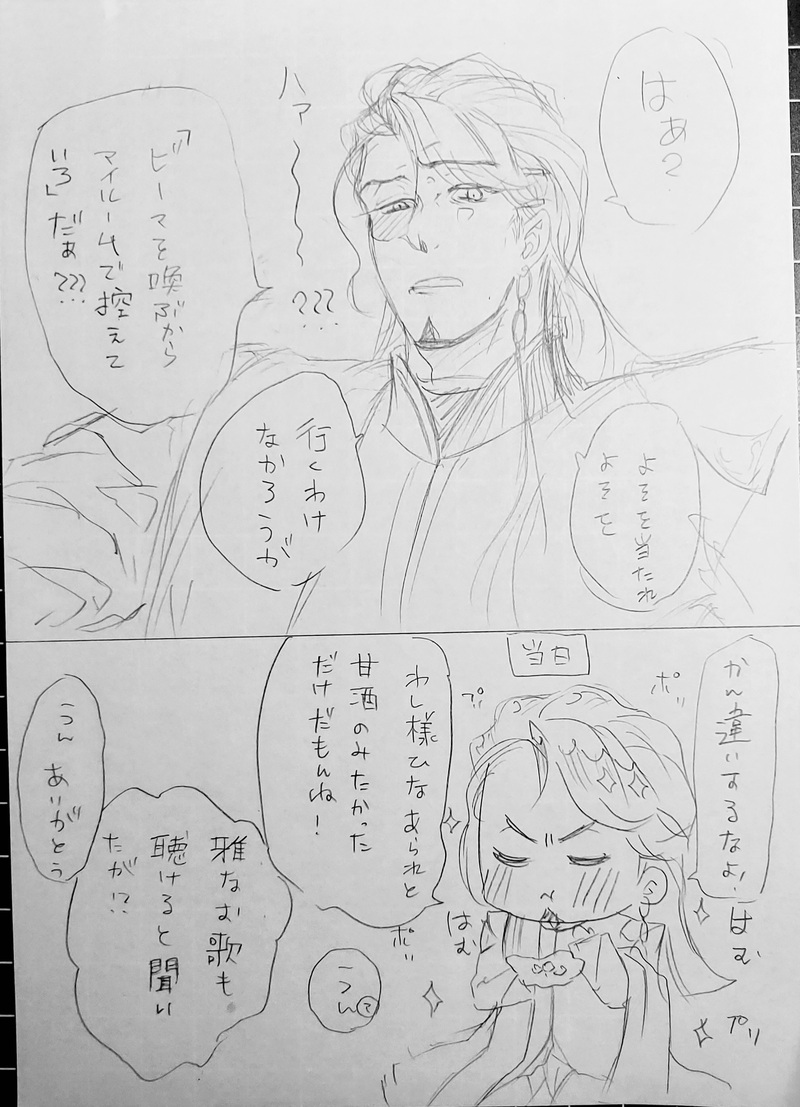 はあ?
ハァ〜〜〜〜???
「ビーマを喚ぶから
マイルームで控えて
いろ」だぁ???
よそを当たれ
よそを
行くわけ
なかろうが
当日
かん違いするなよ!
ポリ
プリ
わし様ひなあられと
甘酒のみたかった
だけだもんね!
はむ
はむ
ポリ
プリ
雅なお歌も
聴けると聞い
たが!?
うん あいがとう
うん?